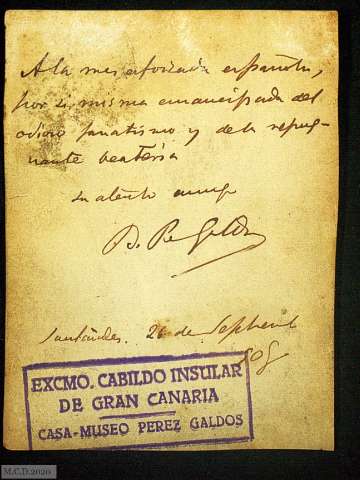 A la mas esforzada española,
por si misma emancipada del
odioso fanatismo y de la repug-
nante beatería
su atento amigo
B. Pe Galdós
Santander. 26 de Septiem
EXCMO. CABILDO INSULAR
DE GRAN CANARIA
CASA-MUSEO PEREZ GALDOS
M.C.D.2020